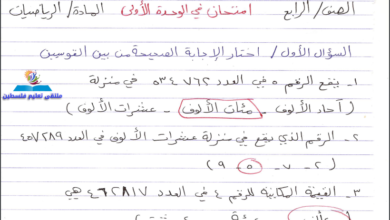 الصف/ الرابع امتحان في الوحدة الأولى المادة/ الرياضيات
السؤال الأول/ اختار الإجابة الصحيحة من بين القوسين
١- يقع الرقم ٥ في العدد ٥٣٤٧٦٢ في منزلة
( آحاد الألوف - مئات الألوف - عشرات الألوف )
ملتقى تعليم فلسطين
٢- الرقم الذي يقع في منزلة عشرات الألوف في العدد ٤٥٧٢٨٩
( ٢ - ٧ - ٥ - ٩
٣- القيمة المكانية للرقم ٤ في العدد ٤٦٢٨١٧ هي